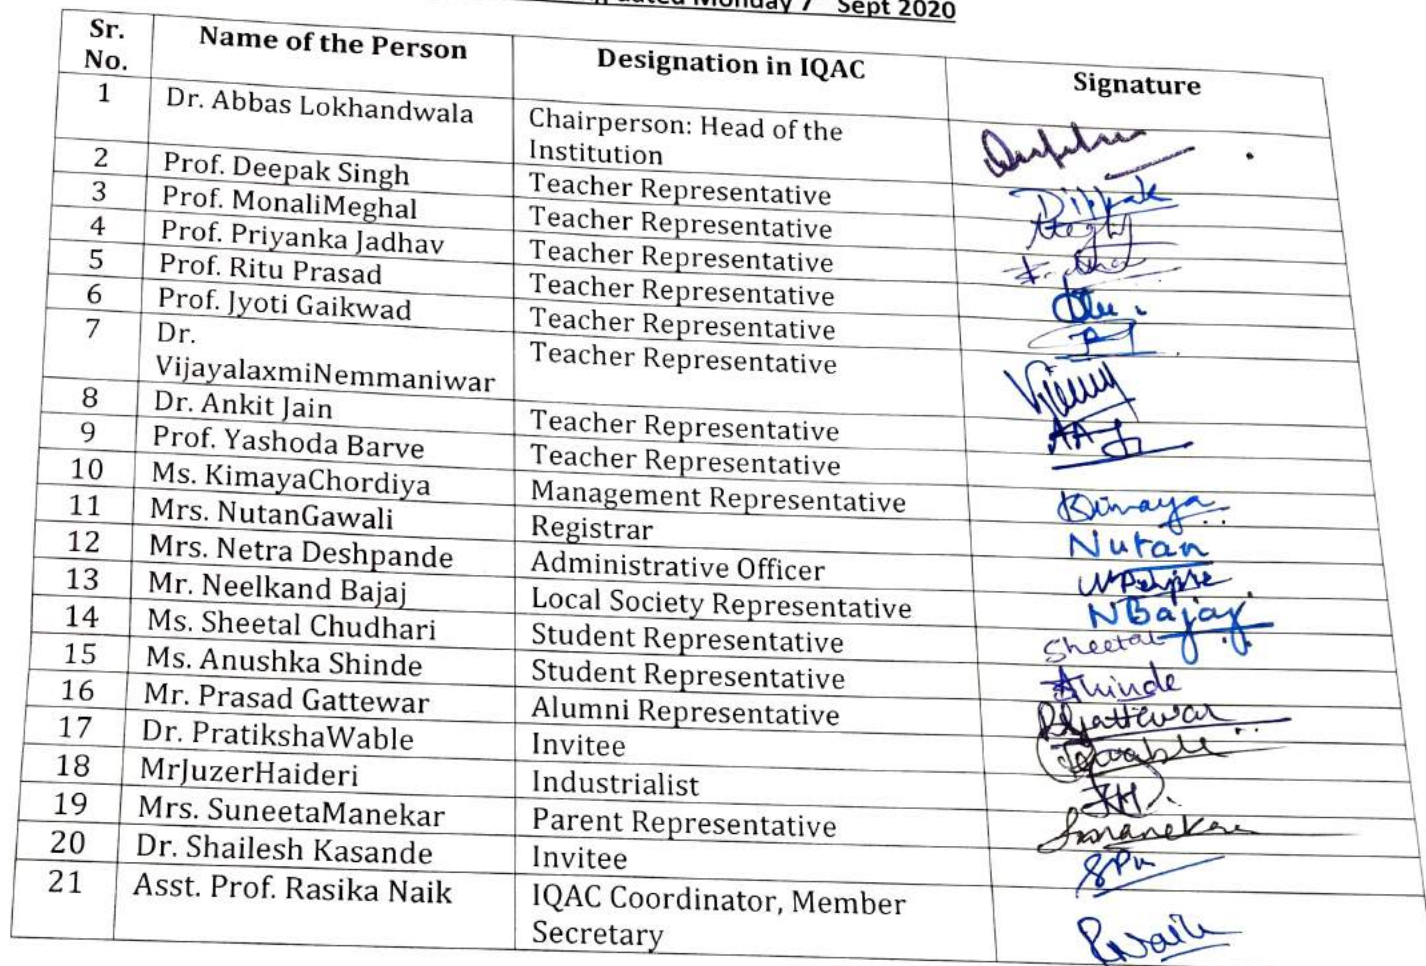 dated Monday 7 Sept 2020
Sr. No. Name of the Person Designation in IQAC Signature
1 Dr. Abbas Lokhandwala Chairperson: Head of the
Institution
2 Prof. Deepak Singh Teacher Representative
3 Prof. MonaliMeghal Teacher Representative
4 Prof. Priyanka Jadhav Teacher Representative
5 Prof. Ritu Prasad Teacher Representative
6 Prof. Jyoti Gaikwad Teacher Representative
7 Dr. Teacher Representative
VijayalaxmiNemmaniwar
8 Dr. Ankit Jain Teacher Representative
9 Prof. Yashoda Barve Teacher Representative
10 Ms. KimayaChordiya Management Representative Kimaya
11 Mrs. NutanGawali Registrar Nutan
12 Mrs. Netra Deshpande Administrative Officer
13 Mr. Neelkand Bajaj Local Society Representative NBajaj
14 Ms. Sheetal Chudhari Student Representative Sheetal
15 Ms. Anushka Shinde Student Representative AShinde
16 Mr. Prasad Gattewar Alumni Representative
17 Dr. PratikshaWable Invitee
18 MrJuzerHaideri Industrialist JH
19 Mrs. SuneetaManekar Parent Representative Smanekar
20 Dr. Shailesh Kasande Invitee
21 Asst. Prof. Rasika Naik IQAC Coordinator, Member RNaik
Secretary